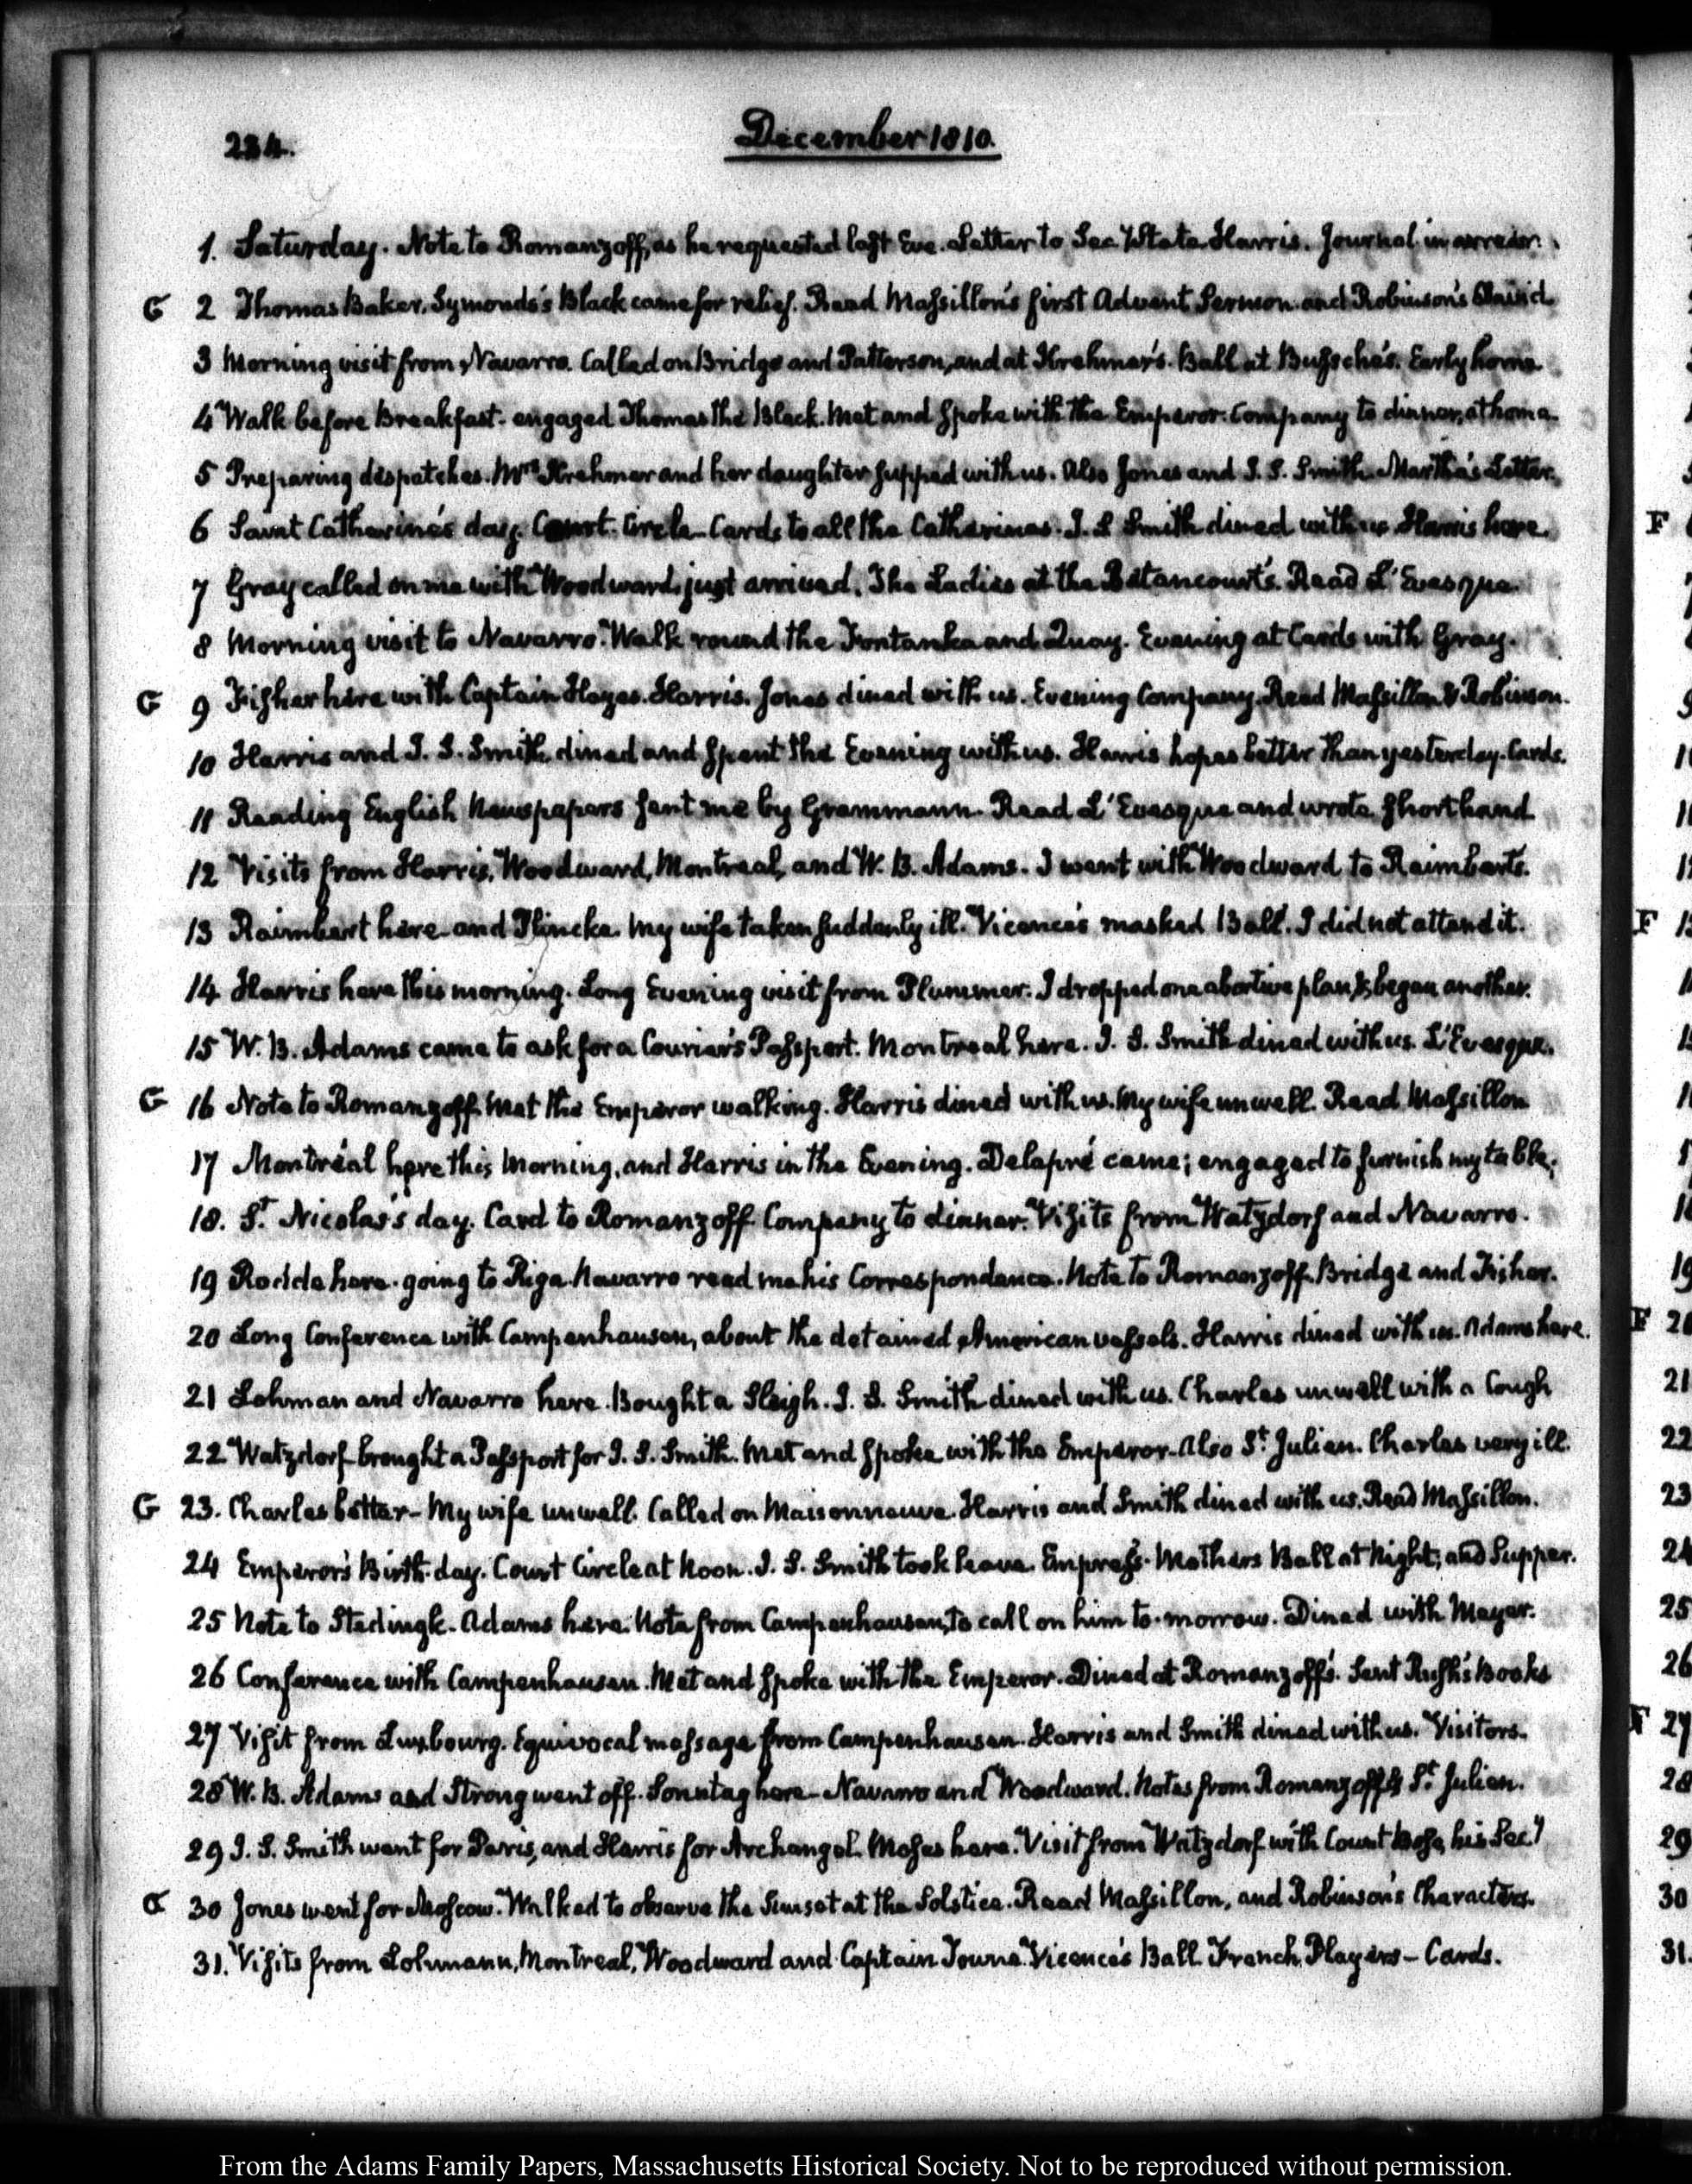 234.
December 1810.
1. Saturday. Note to Romanzoff, as he requested last Eve. Letter to Sec. State. Harris. Journal in arrear.
G 2 Thomas Baker. Symonds's Black came for relief. Read Massillon's first Advent Sermon. and Robinson's
3 Morning visit from Navarro. Called on Bridge and Patterson, and at Krehmer's. Ball at Bussche's. Early home.
4 Walk before Breakfast. engaged Thomas the Black. Met and spoke with the Emperor. Company to dinner, at home.
5 Preparing despatches. Mrs. Krehmer and her daughter supped with us. Also Jones and J. S. Smith. Martha's Letter.
6 Saint Catharine's day. Court. Circle. Cards to all the Catherines. J. S Smith dined with us. Harris here.
7 Gray called on me with Woodward, just arrived. The Ladies at the Betancourt's. Read L'Evesque.
8 Morning visit to Navarro. Walk round the Fontanka and Quay. Evening at Cards with Gray.
G 9 Fisher here with Captain Hayes. Harris. Jones dined with us. Evening Company. Read Massillon & Robinson.
10 Harris and J. S. Smith, dined and spent the Evening with us. Harris hopes better than yesterday. Cards.
11 Reading English Newspapers sent me by Grammann. Read L'Evesque and wrote shorthand.
12 Visits from Harris, Woodward, Montreal, and W. B. Adams. I went with Woodward to Raimbert's.
13 Raimbert here and Plincke. My wife taken suddenly ill. Vicence's masked Ball. I did not attend it.
14 Harris here this morning. Long Evening visit from Plummer. I dropped one abortive plan, & began another.
15 W. B. Adams came to ask for a Courier's Passport. Montreal here. J. S. Smith dined with us. L'Evesque.
G 16 Note to Romanzoff. Met the Emperor walking. Harris dined with us. My wife unwell. Read Massillon
17 Montréal here this Morning, and Harris in the Evening. Delapré came; engaged to furnish my table.
18. St. Nicolas's day. Card to Romanzoff. Company to dinner. Visits from Watzdorf and Navarro.
19 Rodde here. going to Riga. Navarro read me his Correspondence. Note to Romanzoff. Bridge and Fisher.
20 Long Conference with Campenhausen, about the detained American vessels. Harris dined with us. Adams here.
21 Lohman and Navarro here. Bought a Sleigh. J. S. Smith dined with us. Charles unwell with a Cough
22 Watzdorf brought a Passport for J. S. Smith. Met and spoke with the Emperor. Also St. Julien. Charles very ill.
G 23. Charles better - My wife unwell. Called on Maisonneuve. Harris and Smith dined with us. Read Massillon.
24 Emperor's Birth-day. Court Circle at Noon. J. S. Smith took leave. Empress-Mothers Ball at Night, and Supper.
25 Note to Stedingk. Adams here. Note from Campenhausen, to call on him to-morrow. Dined with Meyer.
26 Conference with Campenhausen. Met and spoke with the Emperor. Dined at Romanzoff's. Sent Rush's Books
27 Visit from Luxbourg. Equivocal message from Campenhausen. Harris and Smith dined with us. Visitors.
28 W. B. Adams and Strong went off. Sonntag here - Navarro and Woodward. Notes from Romanzoff & St. Julien.
29 J. S. Smith went for Paris, and Harris for Archangel. Moses here. Visit from Watzdorf with Count Bose, his Secy
G 30 Jones went for Moscow. Walked to observe the Sunset at the Solstice. Read Massillon, and Robinson's Characters.
31. Visits from Lohmann, Montreal, Woodward and Captain Towne. Vicence's Ball. French Players - Cards.
F
F
F
From the Adams Family Papers, Massachusetts Historical Society. Not to be reproduced without permission.